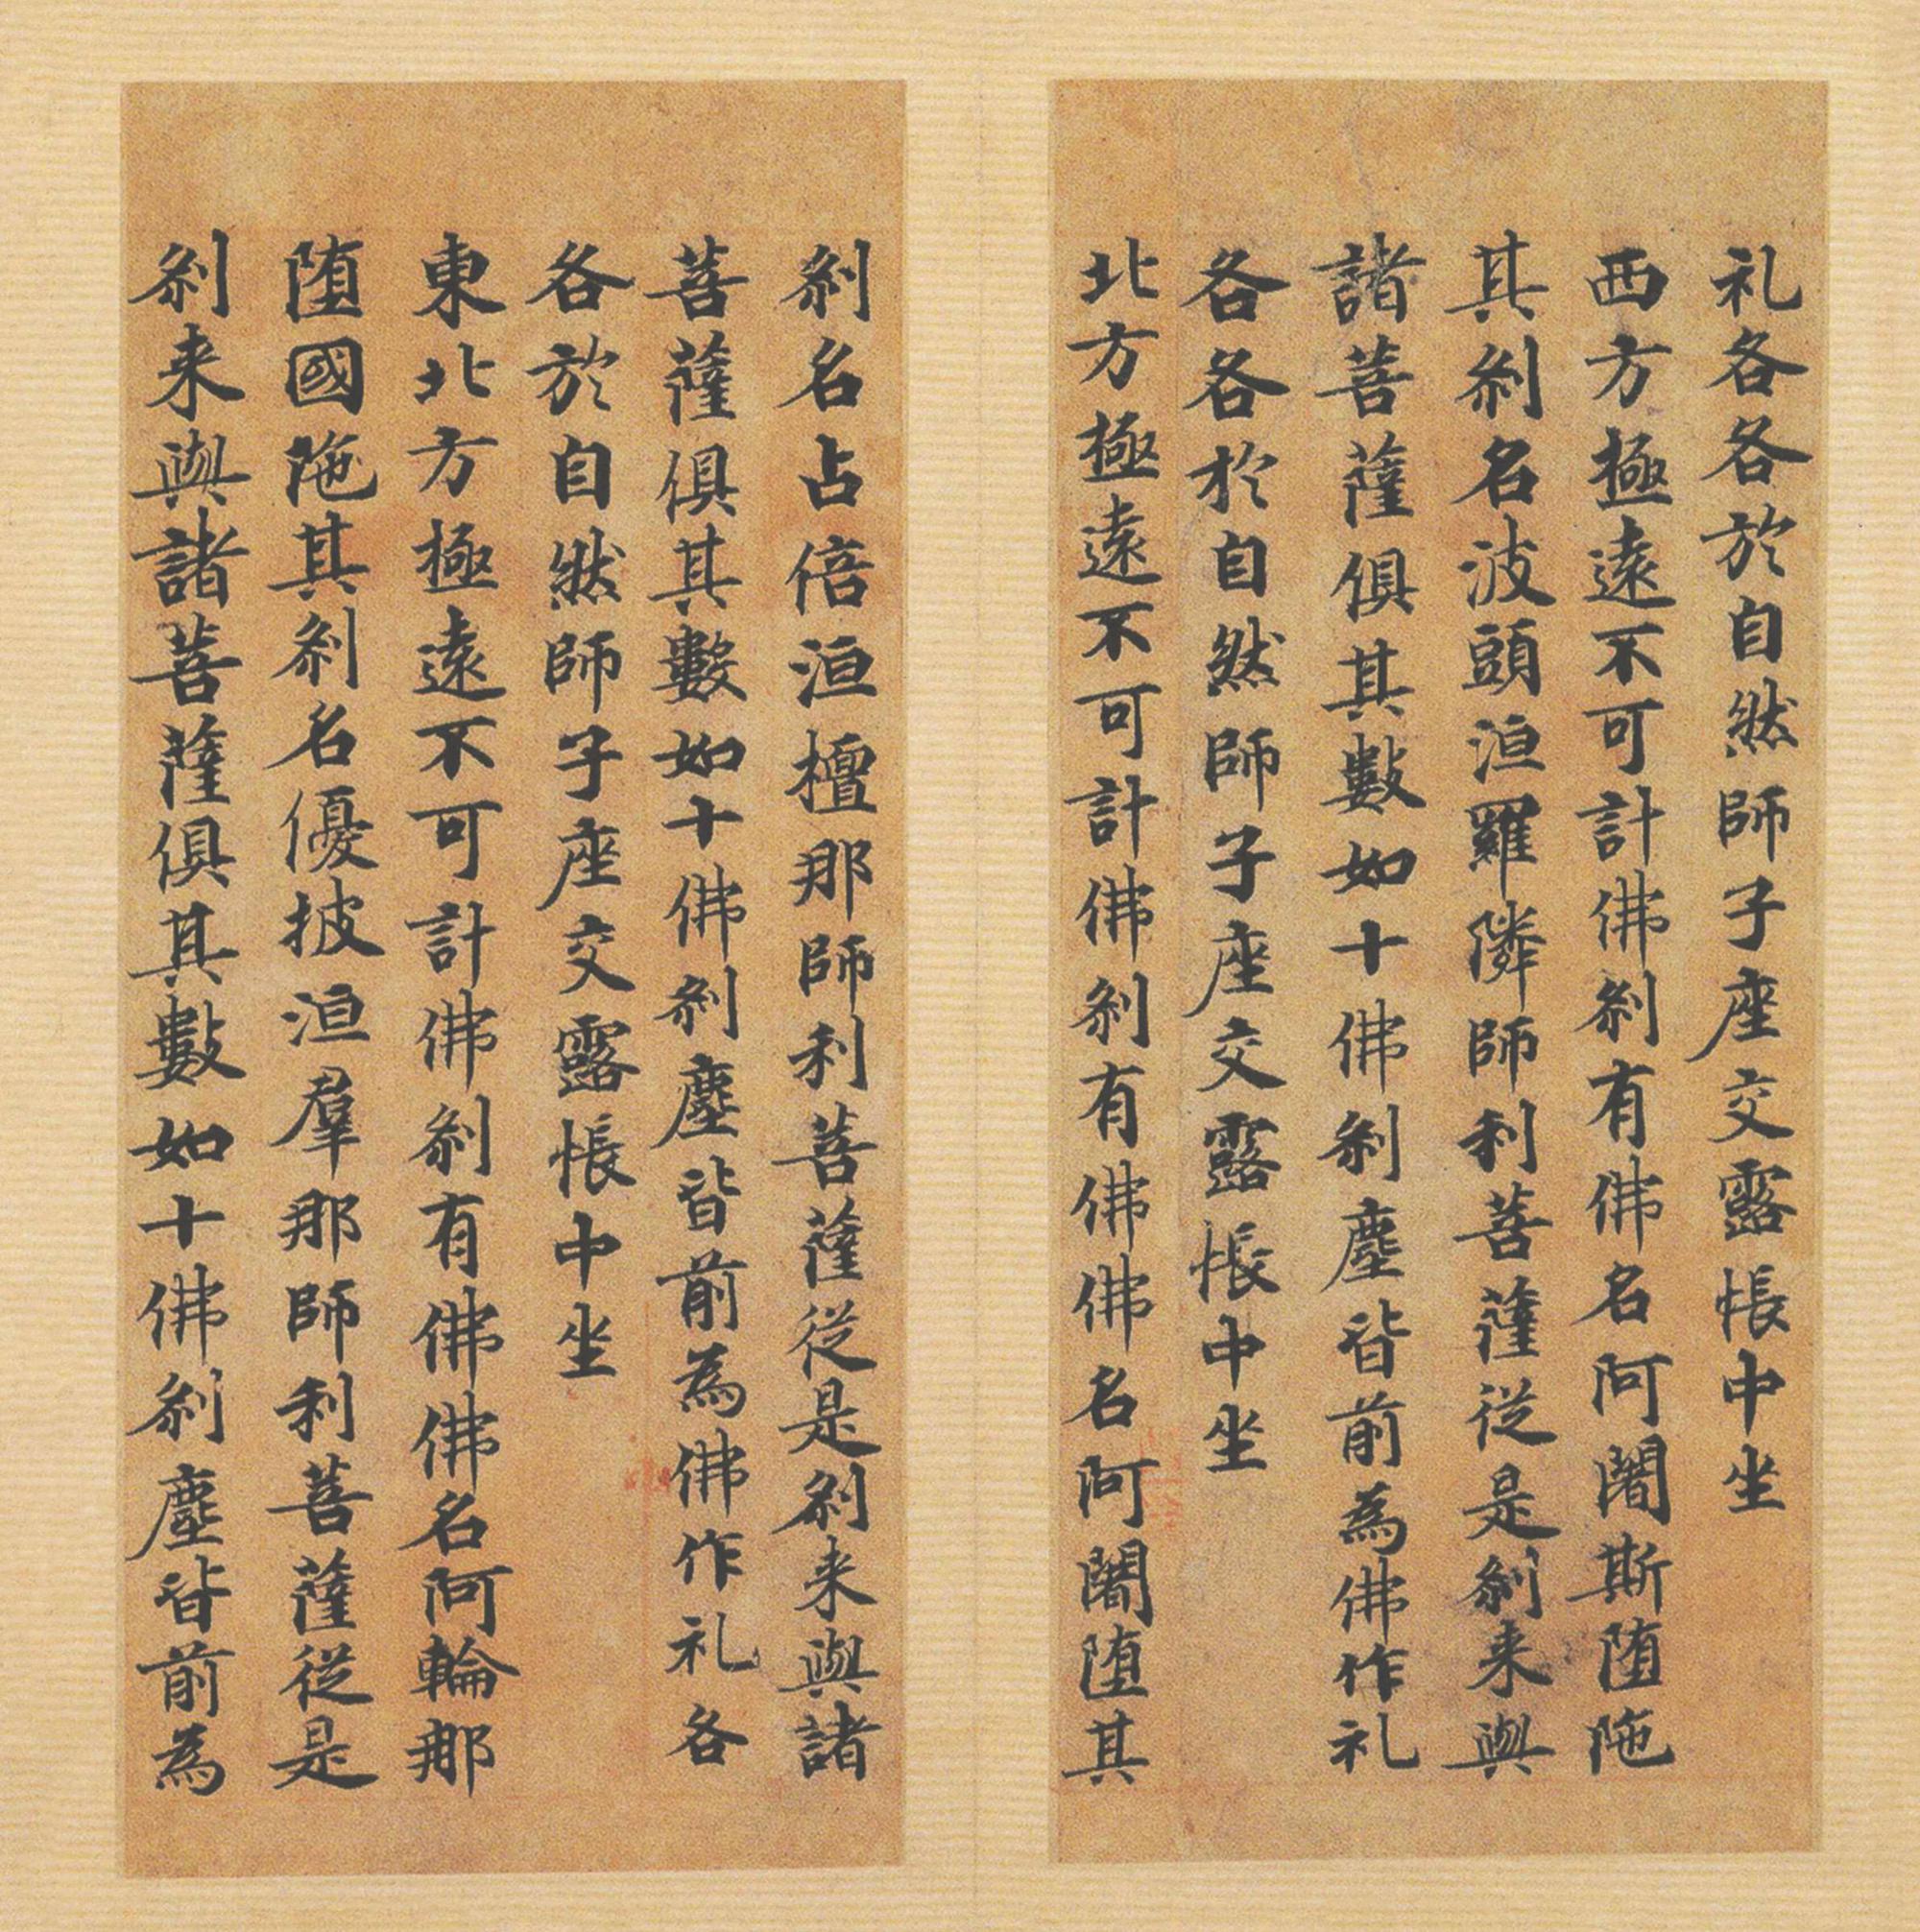 礼各各於自然師子座交露帳中坐
西方極遠不可計佛剎有佛名阿闍斯堕陁
其剎名波頭洹羅隣師利菩薩從是剎来與
諸菩薩俱其數如十佛剎塵皆前為佛作礼
各各於自然師子座交露帳中坐
北方極遠不可計佛剎有佛佛名阿闍堕其
剎名占倍洹檀那師利菩薩從是剎来與諸
菩薩俱其數如十佛剎塵皆前為佛作礼各
各於自然師子座交露帳中坐
東北方極遠不可計佛剎有佛佛名阿輪那
堕國陁其剎名優披洹羣那師利菩薩從是
剎来與諸菩薩俱其數如十佛剎塵皆前為